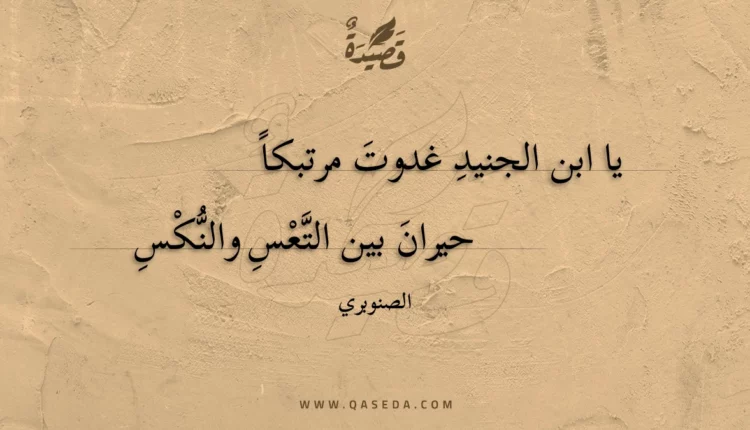 قَصِيْدَةٌ
يا ابن الجنيدِ غدوتَ مرتبكاً
حيرانَ بين التَّعْسِ والنُّكْسِ
الصنوبري
WWW.QASEDA.COM